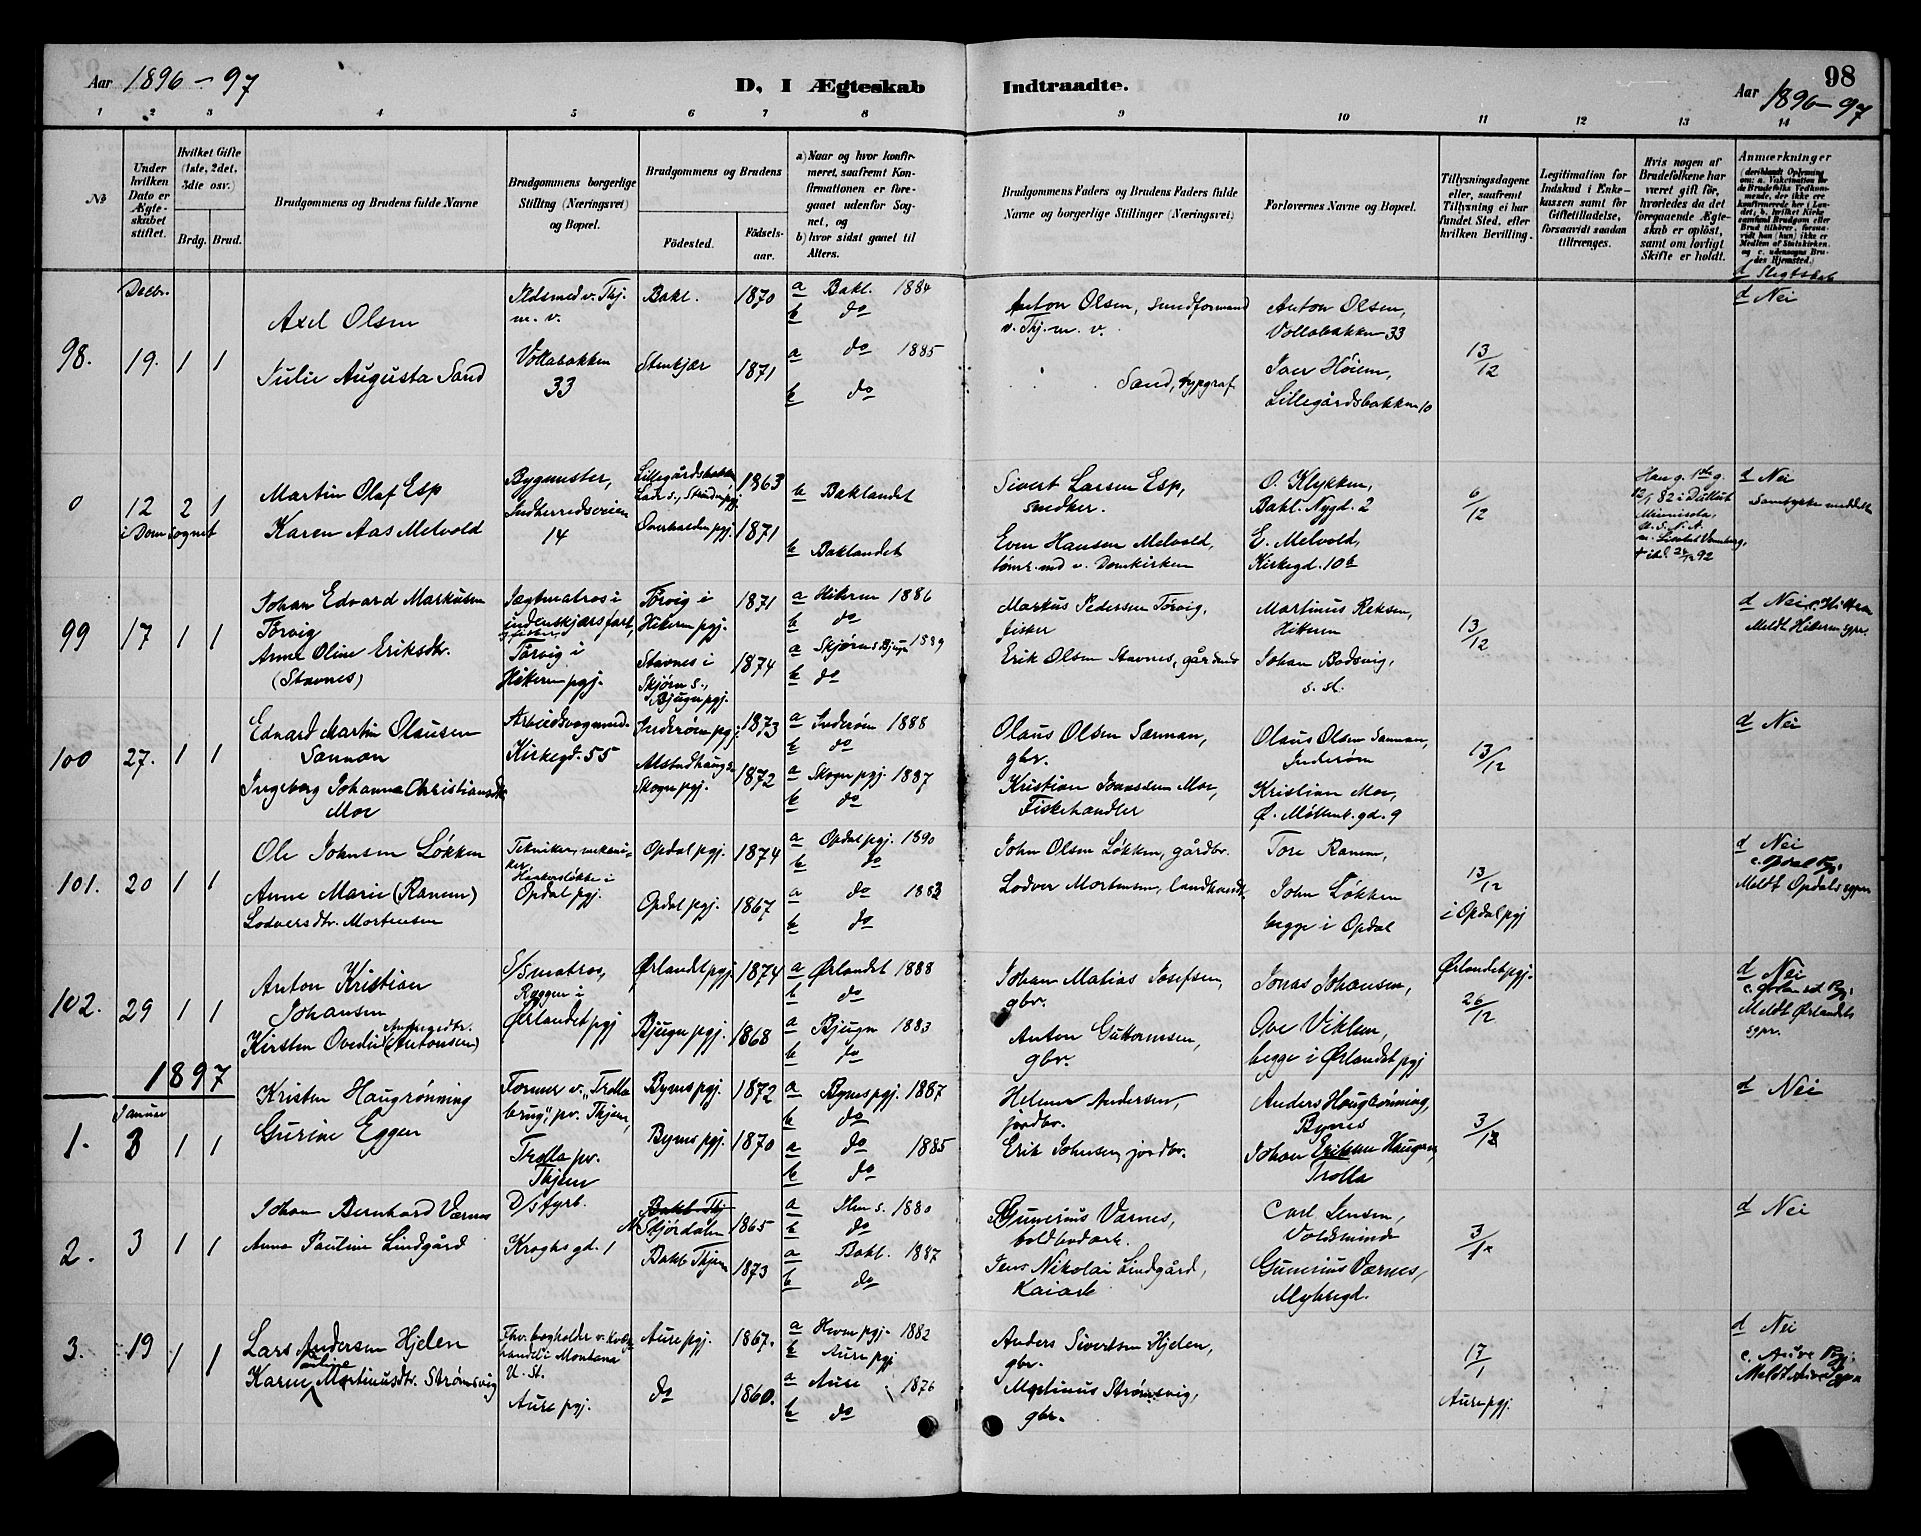 Aar 1896 – 97
D. I Ægteskab Indtraadte.
98
Aar 1896 – 97
1 2 3 4 5 6 7 8 9 10 11 12 13 14
№
Under hvilken Dato er Ægteskabet stiftet.
Hvilket Gifte (1ste, 2det, 3die osv.)
Brdg. Brud.
Brudgommens og Brudens fulde Navne
Brudgommens borgerlige Stilling (Næringsvei) og Bopæl.
Brudgommens og Brudens
Fødested.
Fødselsaar.
a) Naar og hvor konfirmeret, saafremt Konfirmationen er foregaaet udenfor Sognet, og
b) hvor sidst gaaet til Alters.
Brudgommens Faders og Brudens Faders fulde Navne og borgerlige Stillinger (Næringsvei)
Forlovernes Navne og Bopæl.
Tillysningsdagene eller, saafremt Tillysning ei har fundet Sted, efter hvilken Bevilling.
Legitimation for Indskud i Enkekassen samt for Giftetilladelse, forsaavidt saadan tiltrænges.
Hvis nogen af Brudefolkene har været gift før, hvorledes da det foregaaende Ægteskab er opløst, samt om lovligt Skifte er holdt.
Anmærkninger
d Slegtskab
Decbr.
98. 19. 1 1
Axel Olsen
Julie Augusta Sand
Vollabakken
33
Bakl. 1870
Stenkjær 1871
a Bakl. 1884
b do
a do 1885
b do
Anton Olsen,
v. Thj. m. v.
Sand, typograf
Anton Olsen,
Vollabakken 33
Lillegårdsbakken 10
13/12
d Nei
0 12 2 1
i Dom Sognet
Martin Olaf Esp
Karen Aas Melvold
Bygmester,
Indherredsveien
14
1863
Overhalden pgj. 1871
b Baklandet
b Baklandet
Sivert Larsen Esp,
snedker.
Even Hansen Melvold,
tømr. md v. Domkirken
O. Klykken,
Bakl. Nygd. 2
E. Melvold,
Kirkegd. 10b
6/12
Han g. 1ste g.
U. S. N. A.
d Nei
99 17 1 1
Johan Edvard Markusen
Tørvig
Anne Oline Eriksdtr.
(Stavnes)
Jagtmatros i
indenskjærsfart,
Tørvig i
Hiteren pgj.
Tørvig i
Hiteren pgj. 1871
Stavnes i
Skjørn s.,
Bjugn pgj. 1874
a Hiteren 1886
b do
a Skjørn s. Bjugn 1889
b do
Markus Pedersen Tørvig,
fisker
Erik Olsen Stavnes, gårdbr.
Martinus Reksen,
Hiteren
Johan Bodsvig,
s. st.
13/12
d Nei c. Hitteren
Meldt Hiteren sgpr.
100 27. 1 1
Edvard Martin Olausen
Sannan
Ingeborg Johanna Christiansdtr.
Mor
Arbeidsvognmd.
Kirkegd. 55
Inderøen pgj. 1873
Alstadhaug s.
Skogn pgj. 1872
a Inderøen 1888
b do
a Skogn pgj. 1887
b do
Olaus Olsen Sannan,
gbr.
Mor,
Fiskehandler
Olaus Olsen Sannan,
Inderøen
Kristian Mor,
Ø. Møllenb. gd. 9
13/12
d Nei
101. 20 1 1
Ole Johnsen Løkken
Anne Marie (Ranem)
Lodversdtr. Mortensen
Opdal pgj.
Opdal pgj. 1874
Opdal pgj. 1867
a Opdal pgj. 1890
b do
a do 1883
b do
John Olsen Løkken, gårdbr.
Lodver Mortensen, landhandl.
Tore Ranem,
John Løkken
begge i Opdal
13/12
i Opdal pgj
d Nei
c. Opdal Pgj.
Meldt Opdals sgpr.
102. 29 1 1
Anton Kristian
Johansen
Kirsten Ovedie (Antonsen)
S/Smatros,
Ryggen i
Ørlandet pgj
Ørlandet pgj. 1874
Bjugn pgj. 1868
a Ørlandet 1888
b do
a Bjugn 1883
b do
Johan Matias Josefsen,
gbr.
Anton Guttormsen,
gbr.
Jonas Johansen,
Ove Viklem,
begge i Ørlandet pgj
Ørlandet pgj.
26/12
d Nei
c. Ørlandet Pgj.
Meldt Ørlandets
sgpr.
1897
Januar
1. 3 1 1
Kristen Haugrønning
Gurine Eggen
Former v. "Trolla
brug", pv. Thjem,
Trolla pv.
Thjem
Bynes pgj. 1872
Bynes pgj. 1870
a Bynes pgj. 1887
b do
a do 1885
b do
Andersen,
jordbr.
Erik Johnsen, jordbr.
Anders Haugrønning,
Bynes
Johan Eriksen Haugen,
Trolla
3/12
d Nei
2. 3 1 1
Johan Bernhard Værnes
Anna Pauline Lindgård
D/sfyrb.
Kroghs gd. 1
Bakl. Thj
N. Stjørdalen 1865
Bakl. Thjem 1873
a Ilen s. 1880
b do
a Bakl. 1887
b do
Gunerius Værnes,
Jens Nikolai Lindgård,
Kaiarb
Carl Jensen,
Voldsminde
Gunerius Værnes,
Mybrogd.
d Nei
3. 19 1 1
Lars Andersen Hjelen
Karen Pauline Martinusdtr. Strømsvig
Fhv. bogholder v. kvæg-
handel i Montana
U. St.
Aure pgj.
Aure pgj. 1867.
do 1860.
a Hevne pgj. 1882
b Aure pgj
a Aure 1876
b do
Anders Sivertsen Hjelen,
gbr.
Martinus Strømsvig,
gbr.
17/1
Aure pgj.
d Nei
c. Aure Pgj.
Meldt Aure Sgpr